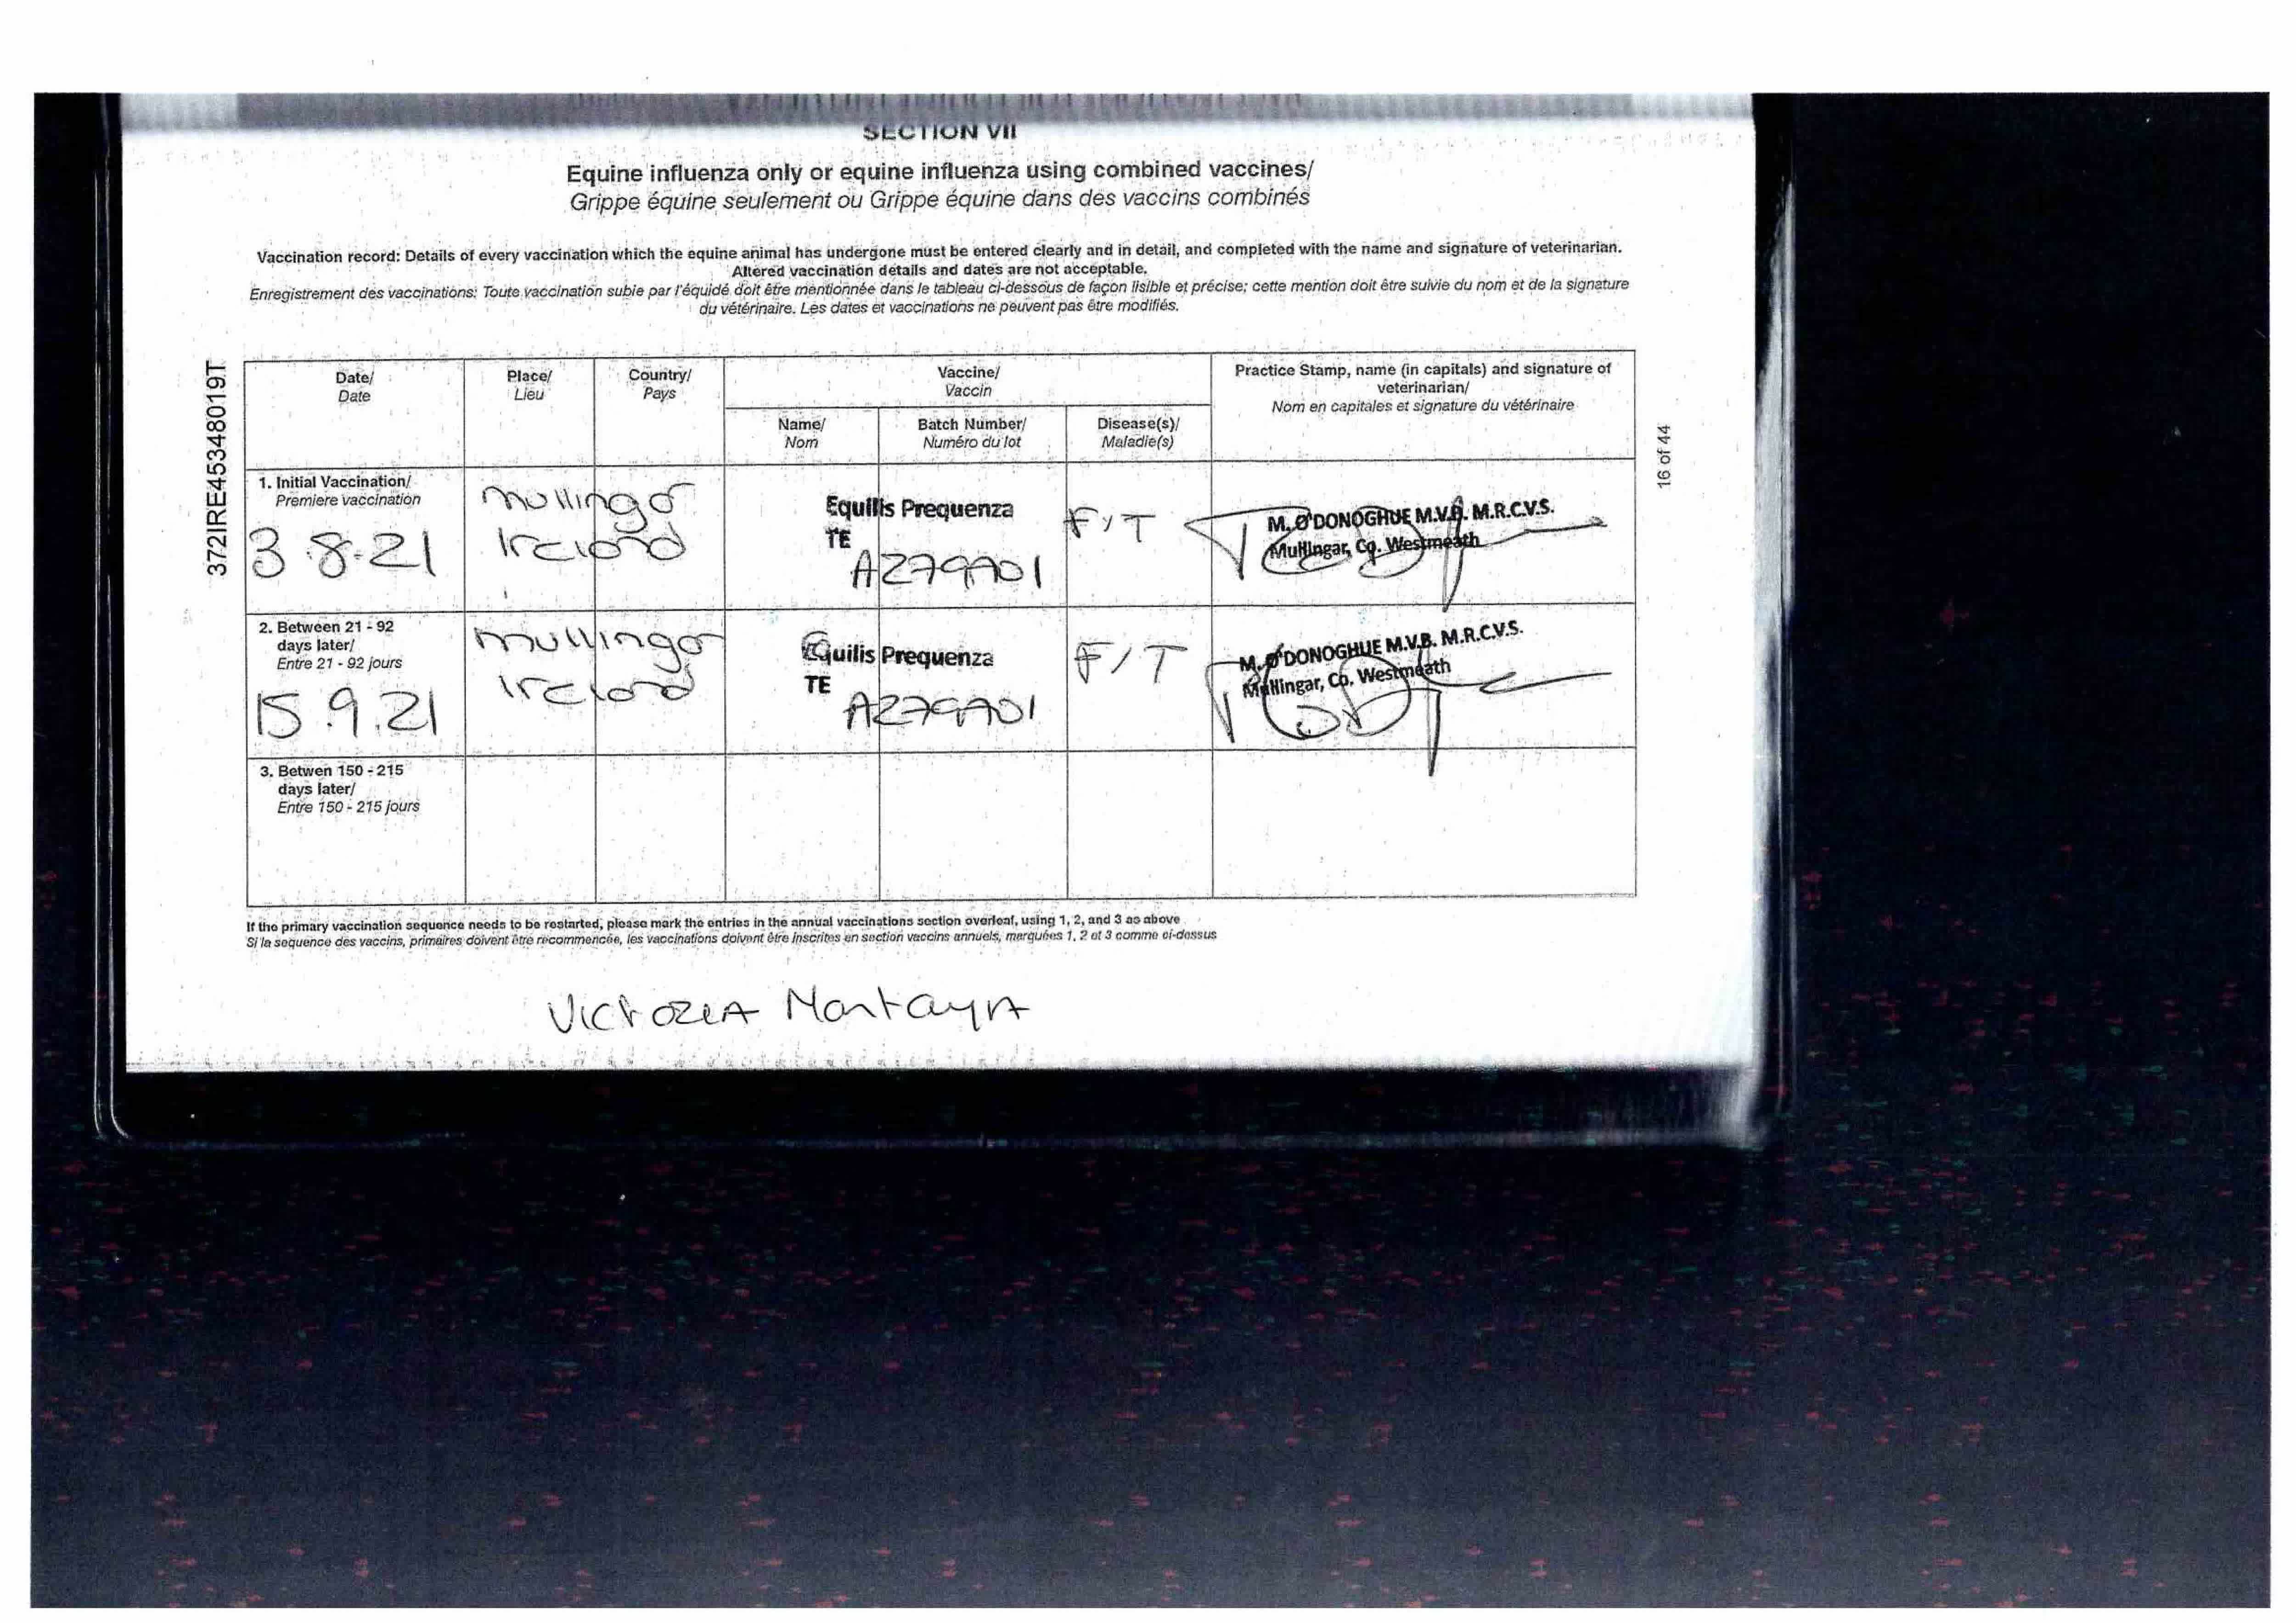 SECTION VII
Equine influenza only or equine influenza using combined vaccines/
Grippe équine seulement ou Grippe équine dans des vaccins combinés
Vaccination record: Details of every vaccination which the equine animal has undergone must be entered clearly and in detail, and completed with the name and signature of veterinarian.
Altered vaccination details and dates are not acceptable.
Enregistrement des vaccinations: Toute vaccination subie par l'équidé doit être mentionnée dans le tableau ci-dessous de façon lisible et précise; cette mention doit être suivie du nom et de la signature
du vétérinaire. Les dates et vaccinations ne peuvent pas être modifiés.
372IRE45348019T
16 of 44
Date/
Date
Place/
Lieu
Country/
Pays
Vaccine/
Vaccin
Name/
Nom
Batch Number/
Numéro du lot
Disease(s)/
Maladie(s)
Practice Stamp, name (in capitals) and signature of
veterinarian/
Nom en capitales et signature du vétérinaire
1. Initial Vaccination/
Premiere vaccination
3.8.21
Mullingar
Ireland
Equilis Prequenza
TE
A279A01
F/T
M. O'DONOGHUE M.V.B. M.R.C.V.S.
Mullingar, Co. Westmeath
2. Between 21 - 92
days later/
Entre 21 - 92 jours
15.9.21
Mullingar
Ireland
Equilis Prequenza
TE
A279A01
F/T
M. O'DONOGHUE M.V.B. M.R.C.V.S.
Mullingar, Co. Westmeath
3. Betwen 150 - 215
days later/
Entre 150 - 215 jours
If the primary vaccination sequence needs to be restarted, please mark the entries in the annual vaccinations section overleaf, using 1, 2, and 3 as above
Si la sequence des vaccins, primaires doivent être recommencée, les vaccinations doivent être inscrites en section vaccins annuels, marquées 1, 2 et 3 comme ci-dessus
VICTORIA Montayn